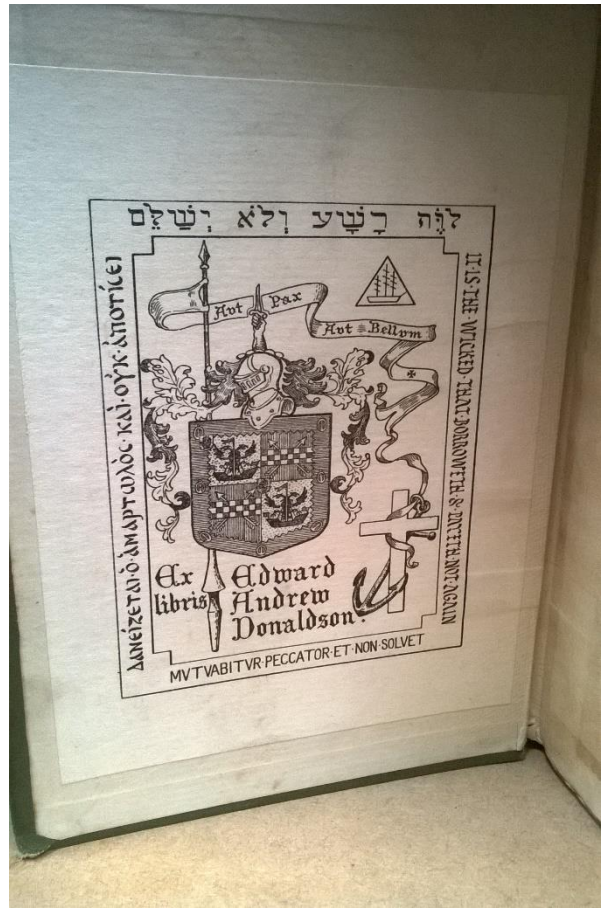 לוֶֹה רָשָׁע וְלֹא יְשַׁלֵּם
ΔΑΝΕΊΖΕΤΑΙ·Ὁ·ἉΜΑΡΤΩΛῸC·ΚΑῚ·ΟΥ̓Κ·ἈΠΟΤΊCΕΙ
IT·IS·THE·WICKED·THAT·BORROWETH·&·PAYETH·NOT·AGAIN
Aut Pax
Aut Bellvm
Ex libris
Edward
Andrew
Donaldson.
MVTVABITVR·PECCATOR·ET·NON·SOLVET